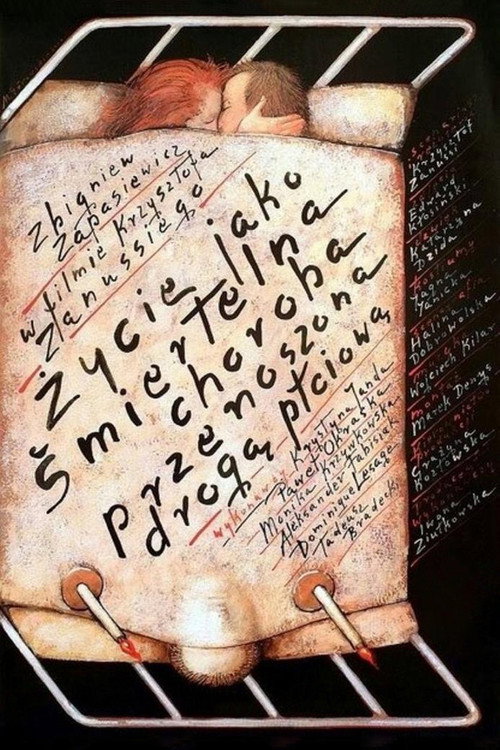 Zbigniew
Zapasiewicz
w filmie Krzysztofa
Zanussiego
Życie jako
śmiertelna
choroba
przenoszona
drogą płciową
wykonawcy Krystyna Janda
Paweł Okraska
Monika Krzywkowska
Aleksander Fabisiak
Dominique Lesage
Tadeusz
Bradecki
scenariusz
Krzysztof
Zanussi
Edward
Kłosiński
Katarzyna
Dzida
kostiumy
Jagna
Janicka
Halina
Dobrowolska
Wojciech Kilar
Marek Denys
Grażyna
Kozłowska
Iwona
Ziułkowska